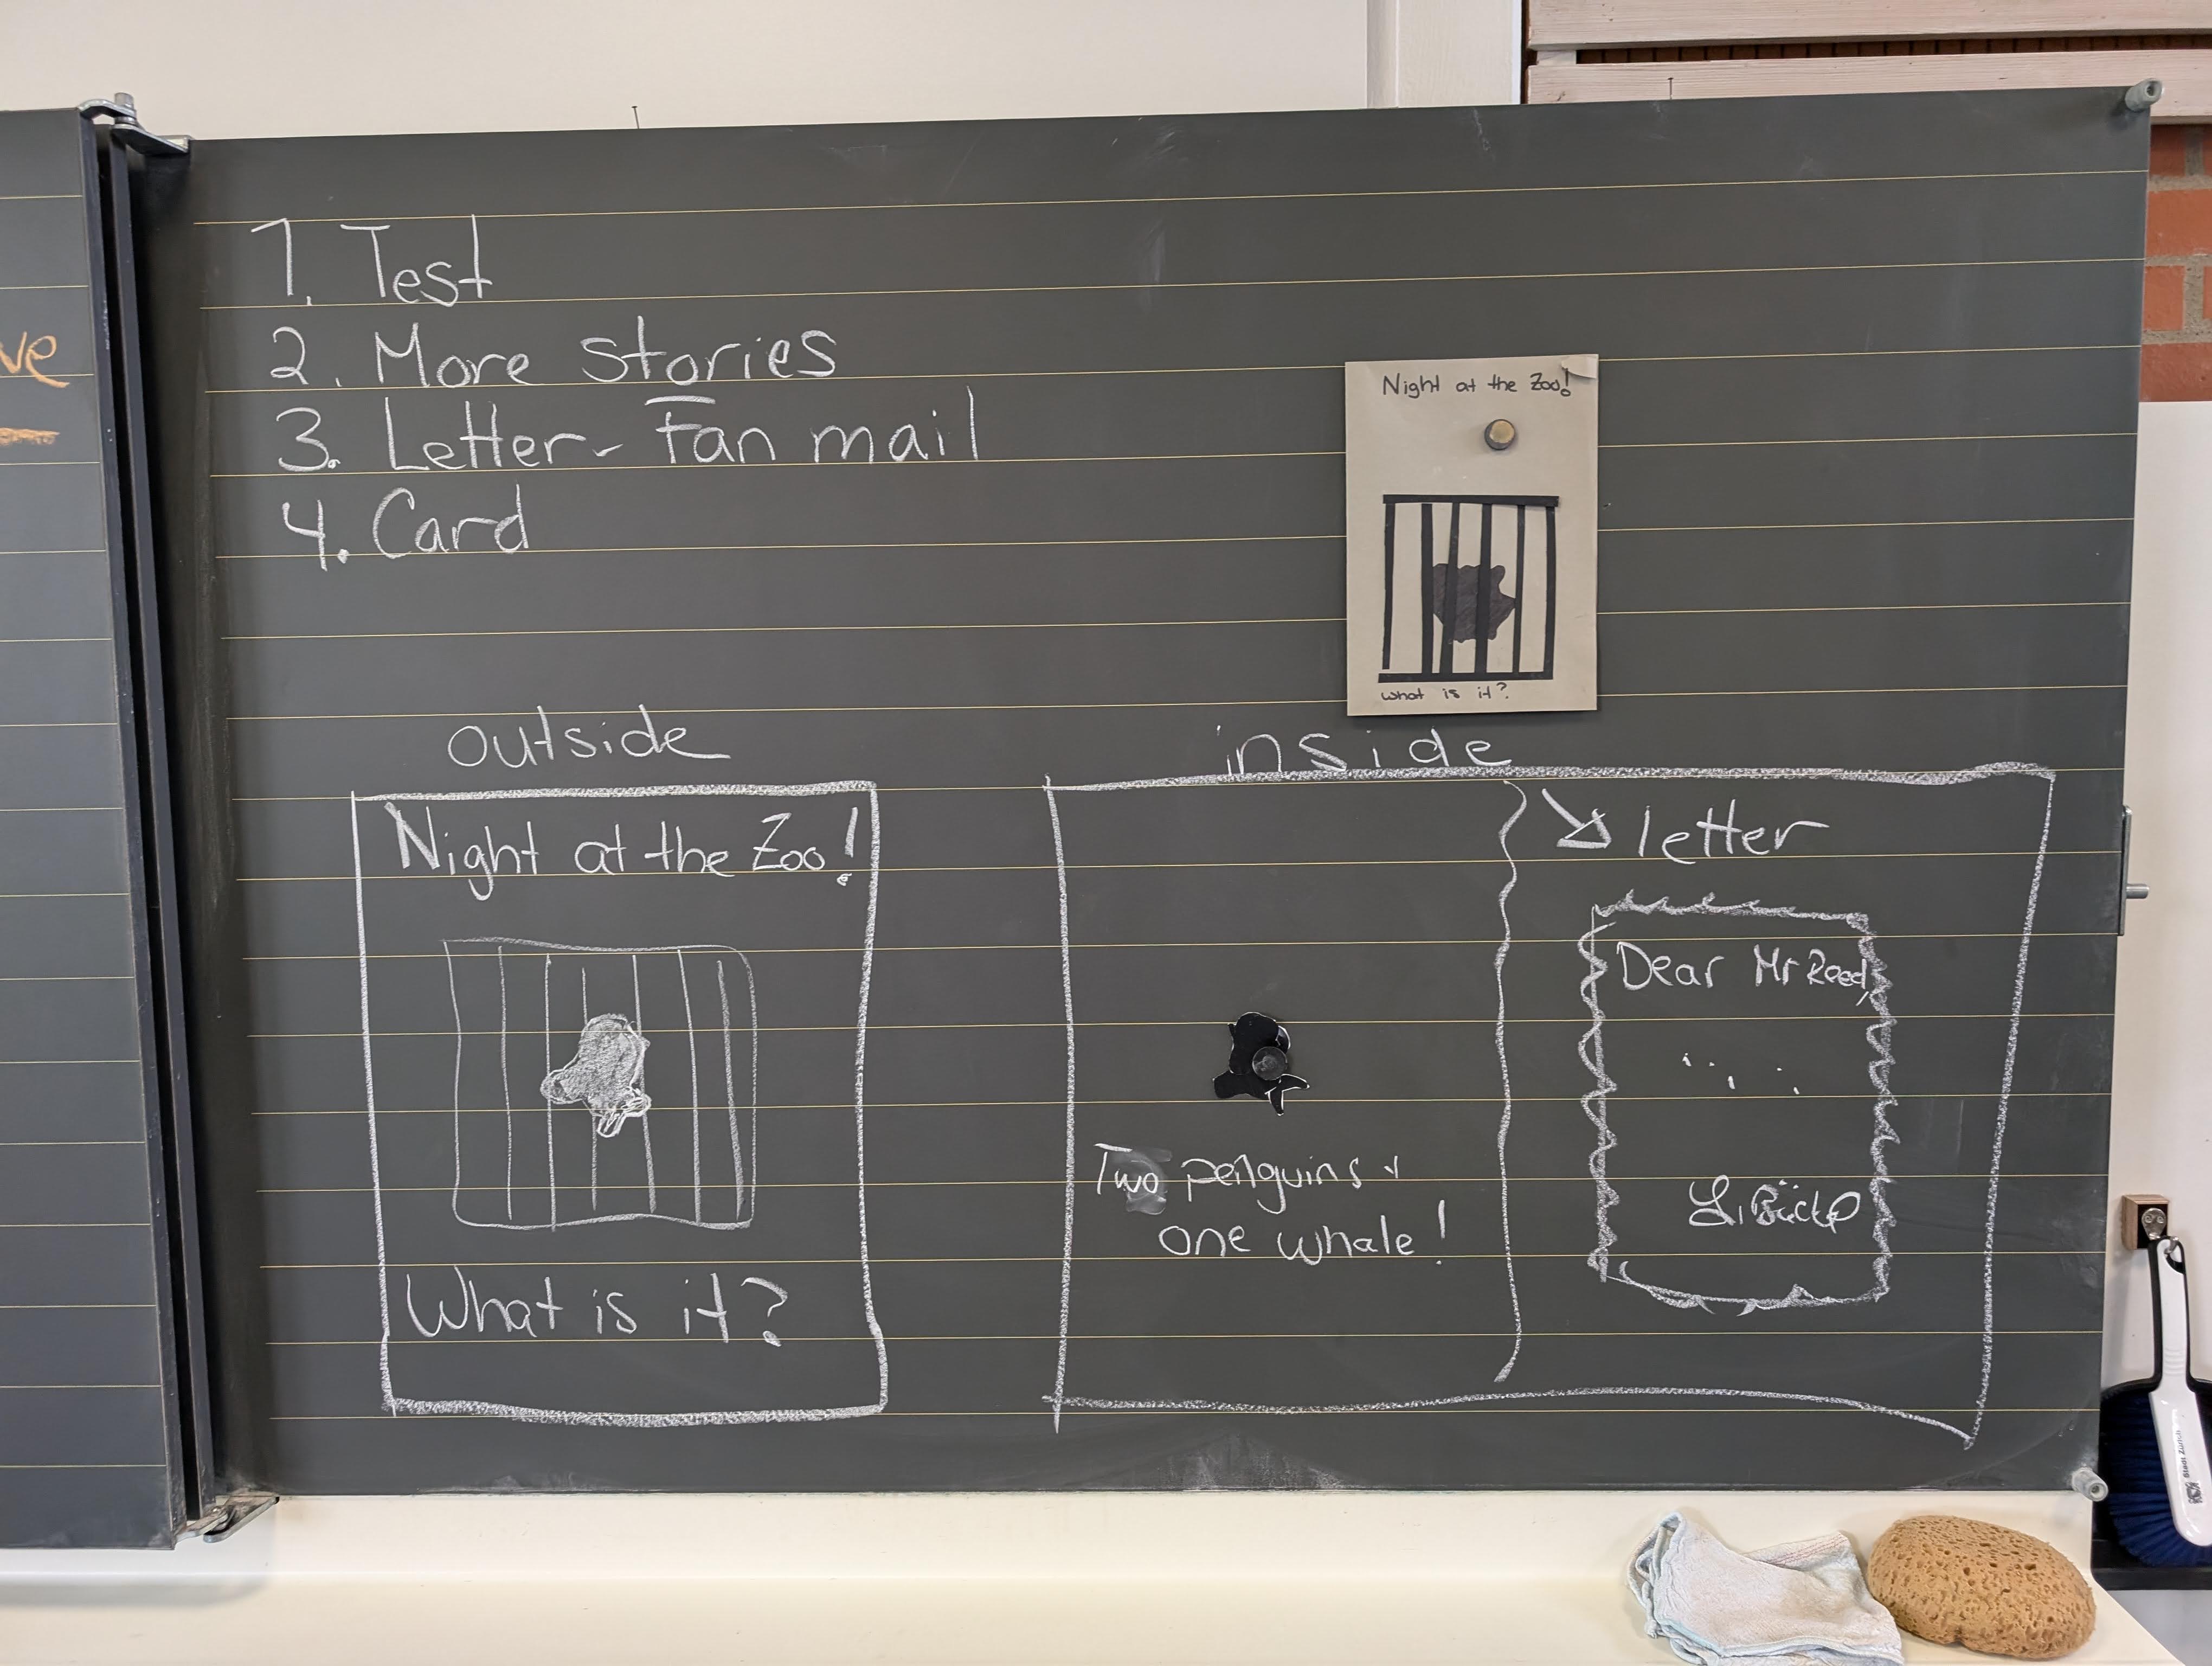 ve
1. Test
2. More stories
3. Letter - Fan mail
4. Card
Night at the Zoo!
what is it?
outside
Night at the Zoo!
What is it?
inside
letter
Two penguins +
one whale!
Dear Mr Reed,
Stadt Zürich